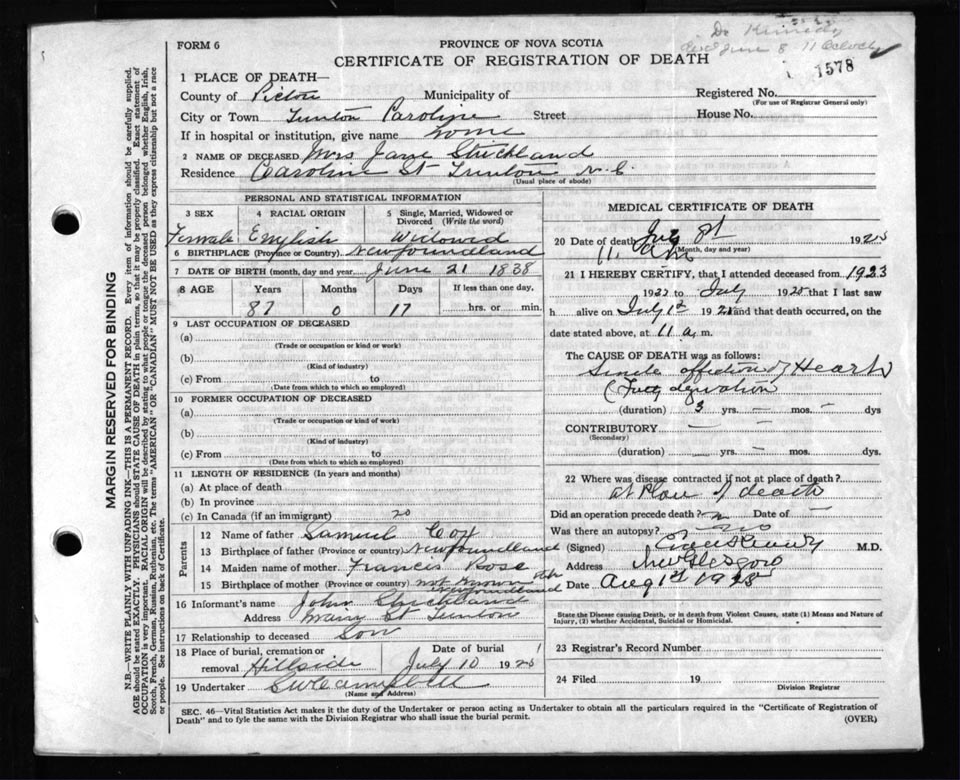 Dr Kennedy
June 8 11 Oclock
1578
FORM 6
PROVINCE OF NOVA SCOTIA
CERTIFICATE OF REGISTRATION OF DEATH
1 PLACE OF DEATH—
County of Pictou Municipality of
Registered No.
(For use of Registrar General only)
City or Town Caroline Street House No.
If in hospital or institution, give name home
2 NAME OF DECEASED Mrs Jane Strickland
Residence Caroline St
(Usual place of abode)
PERSONAL AND STATISTICAL INFORMATION
3 SEX 4 RACIAL ORIGIN 5 Single, Married, Widowed or Divorced (Write the word)
Female English Widowed
6 BIRTHPLACE (Province or Country) Newfoundland
7 DATE OF BIRTH (month, day and year) June 21 1838
8 AGE Years Months Days If less than one day,
87 0 17 hrs. or min.
9 LAST OCCUPATION OF DECEASED
(a)
(Trade or occupation or kind or work)
(b)
(Kind of industry)
(c) From to
(Date from which to which so employed)
10 FORMER OCCUPATION OF DECEASED
(a)
(Trade or occupation or kind of work)
(b)
(Kind of industry)
(c) From to
(Date from which to which so employed)
11 LENGTH OF RESIDENCE (In years and months)
(a) At place of death
(b) In province
(c) In Canada (if an immigrant) 20
Parents
12 Name of father Samuel Cox
13 Birthplace of father (Province or country) Newfoundland
14 Maiden name of mother Francis Rose
15 Birthplace of mother (Province or country) not known
Newfoundland
16 Informant's name John Strickland
Address Main St
17 Relationship to deceased Son
18 Place of burial, cremation or Date of burial
removal Hillside July 10 1925
19 Undertaker
(Name and Address)
MEDICAL CERTIFICATE OF DEATH
20 Date of death 1925
(Month, day and year)
11
21 I HEREBY CERTIFY, that I attended deceased from 1923
1922 to July 1925 that I last saw
h alive on July 192 and that death occurred, on the
date stated above, at 11 a. m.
The CAUSE OF DEATH was as follows:
Senile affection of Heart
(duration) 3 yrs. — mos. — dys
CONTRIBUTORY —
(Secondary)
(duration) yrs. mos. dys.
22 Where was disease contracted if not at place of death?
at Place of death
Did an operation precede death? Date of —
Was there an autopsy? no
(Signed) M.D.
Address New Glasgow
Date Aug 1st 1925
State the Disease causing Death, or in death from Violent Causes, state (1) Means and Nature of
Injury, (2) whether Accidental, Suicidal or Homicidal.
23 Registrar's Record Number
24 Filed 19
Division Registrar
SEC. 46—Vital Statistics Act makes it the duty of the Undertaker or person acting as Undertaker to obtain all the particulars required in the "Certificate of Registration of
Death" and to fyle the same with the Division Registrar who shall issue the burial permit.
(OVER)
MARGIN RESERVED FOR BINDING
N.B.—WRITE PLAINLY WITH UNFADING INK—THIS IS A PERMANENT RECORD. Every item of information should be carefully supplied.
AGE should be stated EXACTLY. PHYSICIANS should STATE CAUSE OF DEATH in plain terms, so that it may be properly classified. Exact statement of
OCCUPATION is very important. RACIAL ORIGIN will be described by stating to what people or tongue the deceased person belonged whether English, Irish,
Scotch, French, German, Russian, Ruthenian, etc. The terms "AMERICAN" OR "CANADIAN" MUST NOT BE USED as they express citizenship but not a race
or people. See instructions on back of Certificate.